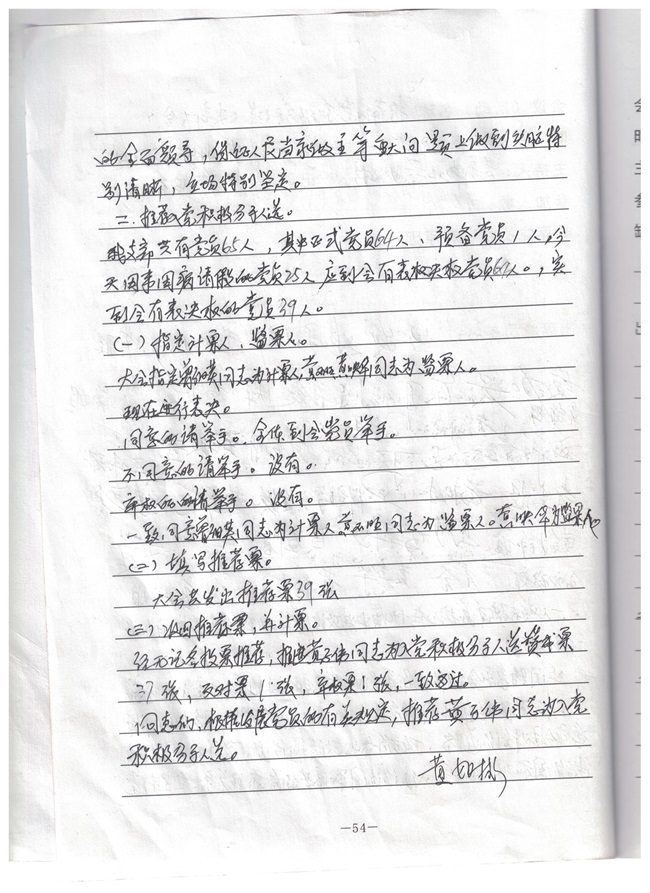 的全面领导，保证人民当家做主等重大问题上做到头脑特
别清晰，立场特别坚定。
二.推荐入党积极分子人选。
我支部共有党员65人，其中正式党员64人、预备党员1人。今
天因事因病请假的党员25人 应到会有表决权党员64人。，实
到会有表决权的党员39人。
(一)指定计票人、监票人。
大会指定 同志为计票人 同志为监票人。
现在进行表决。
同意的请举手。全体到会党员举手。
不同意的请举手。没有。
弃权的请举手。没有。
一致同意 同志为计票人 同志为监票人。 为监票人
(二)填写推荐票。
大会共发出推荐票39张
(三)收回推荐票，并计票。
经无记名投票推荐，推荐黄 同志为入党积极分子人选赞成票
37张，反对票1张，弃权票1张，一致通过。
同志们、根据发展党员的有关规定，推荐黄 同志为入党
积极分子人选。
黄
—54—
会
时
主
参
缺
出